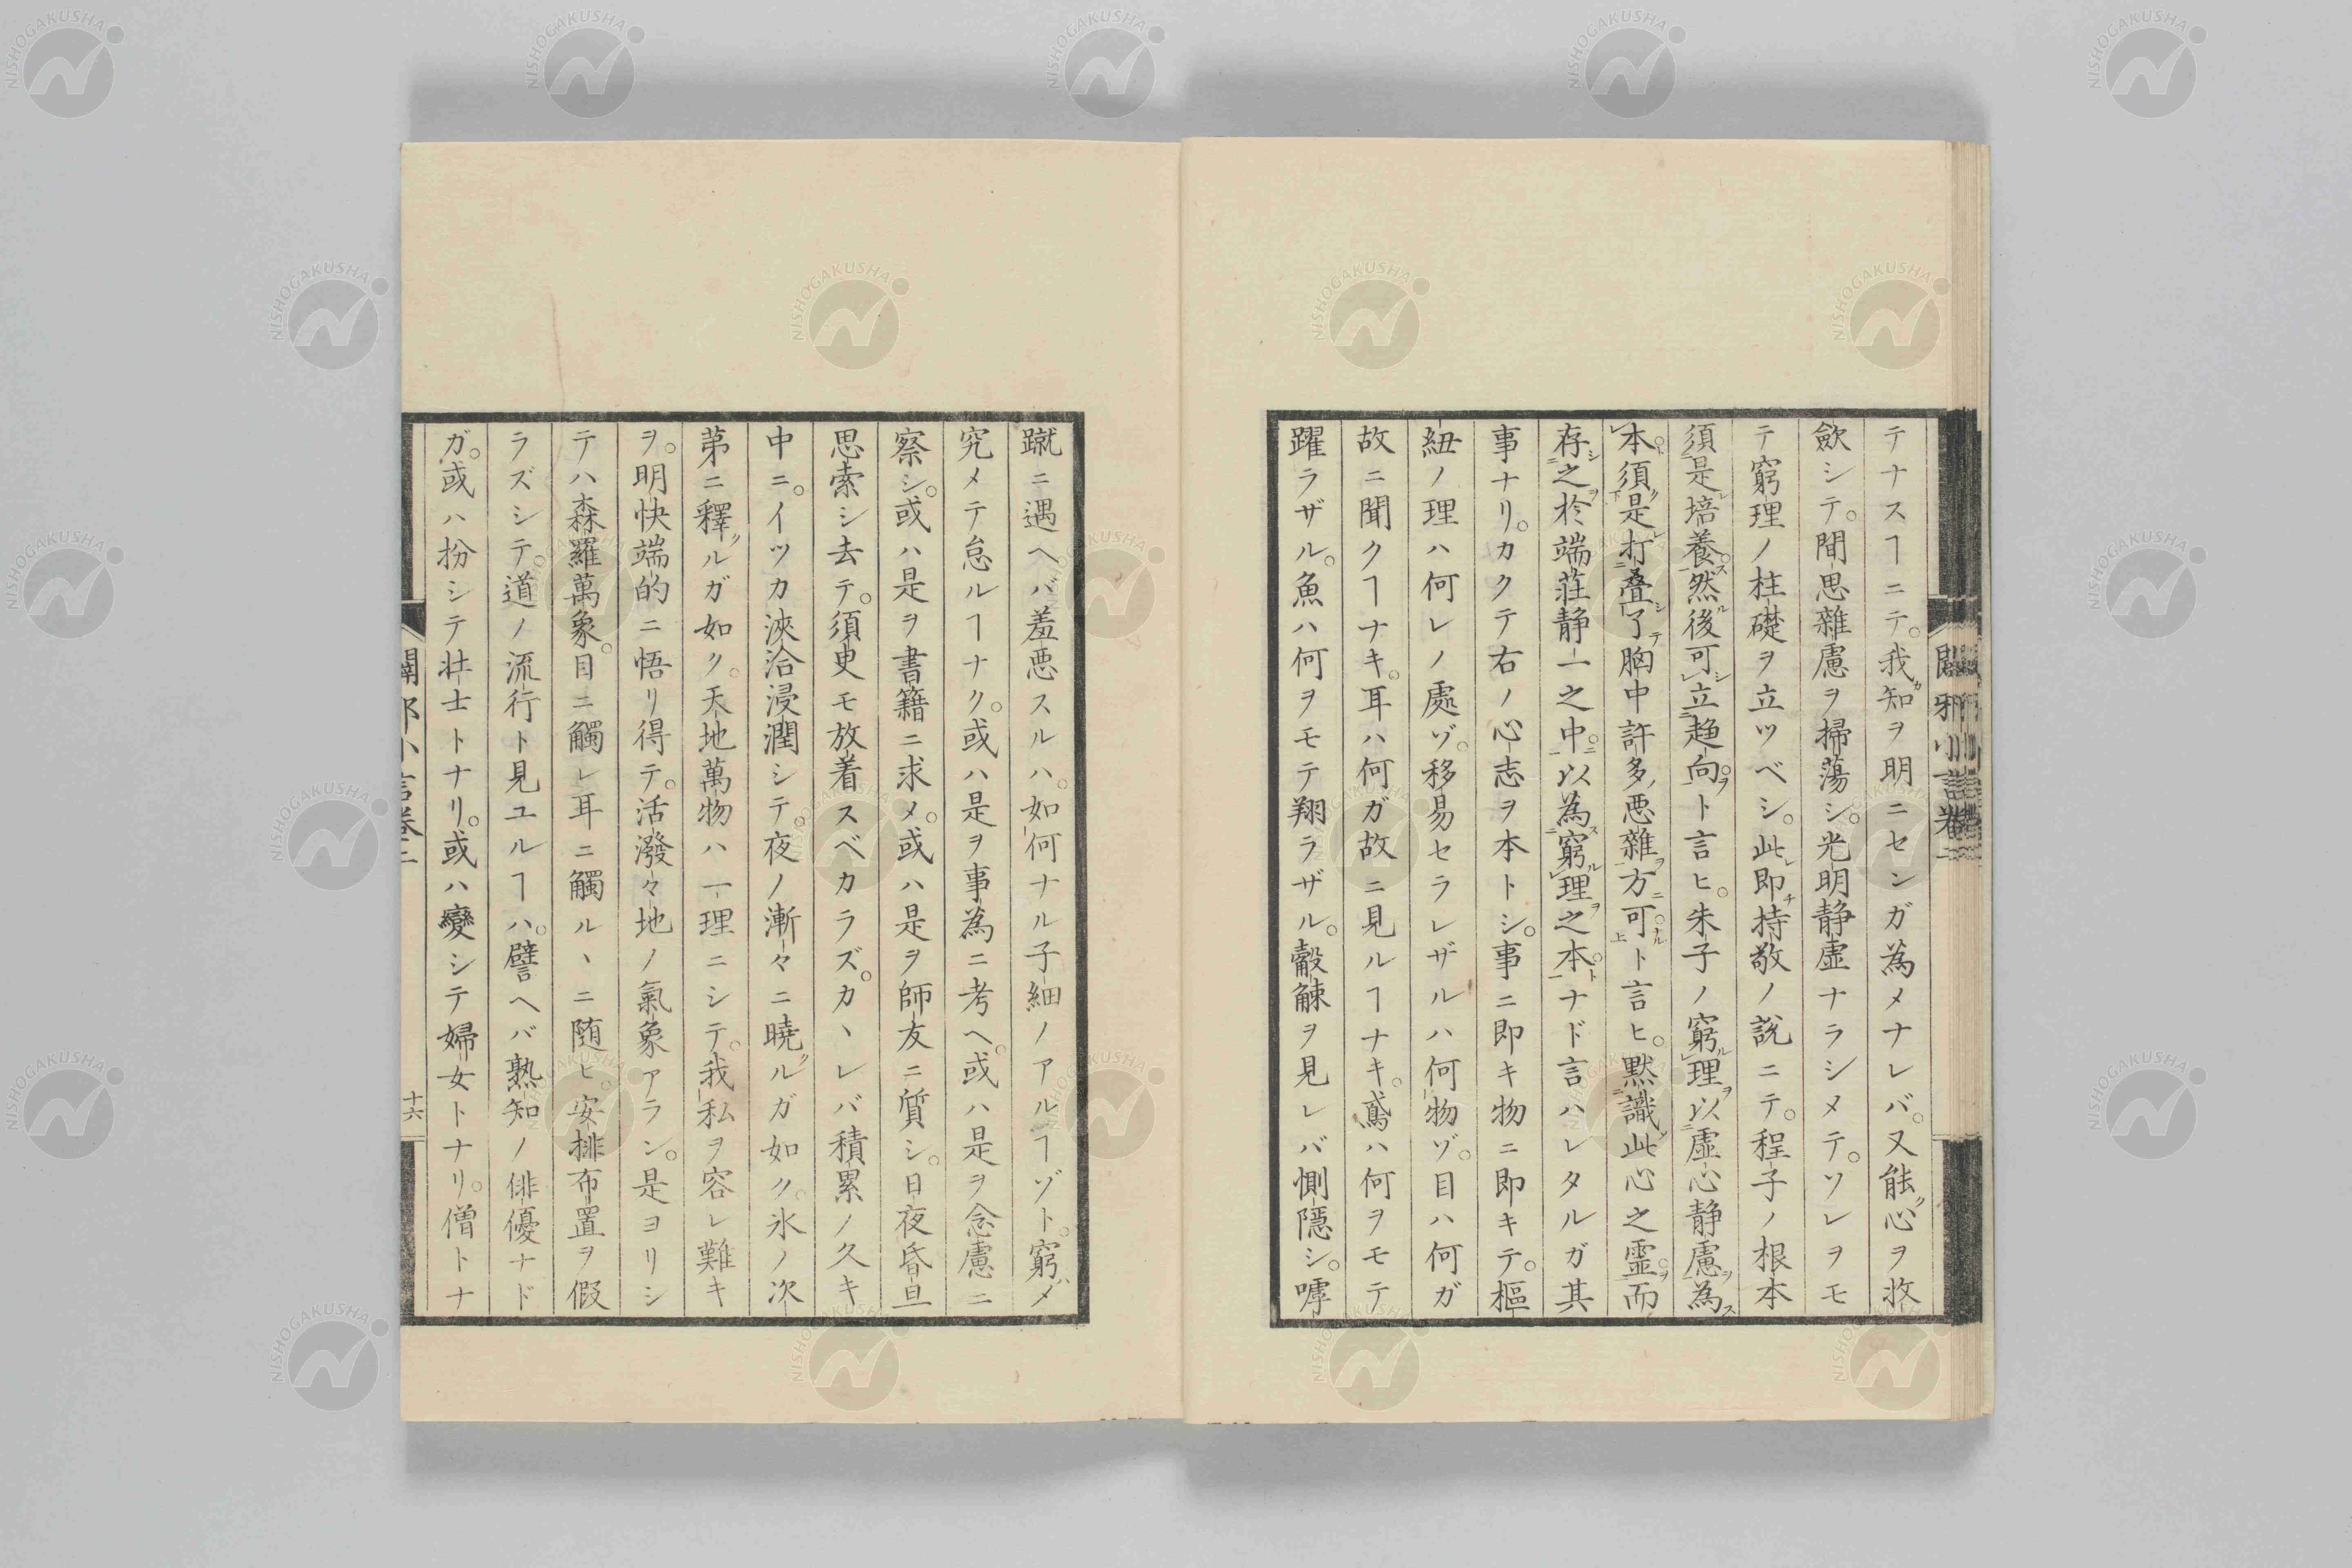 テナスヿニテ。我知ヲ明ニセンガ為メナレバ。又能ク心ヲ收
歛シテ。閒思雜慮ヲ掃蕩シ。光明靜虛ナラシメテ。ソレヲモ
テ窮理ノ柱礎ヲ立ツベシ。此レ即チ持敬ノ說ニテ。程子ノ根本
須是培養然後可立趨向ト言ヒ。朱子ノ窮理以虛心靜慮為
本須是打疊了胸中許多惡雜方可ト言ヒ。默識此心之霊而
存之於端莊靜一之中以為窮理之本ナド言ハレタルガ其
事ナリ。カクテ右ノ心志ヲ本トシ。事ニ即キ物ニ即キテ。樞
紐ノ理ハ何レノ處ゾ。移易セラレザルハ何物ゾ。目ハ何ガ
故ニ聞クヿナキ。耳ハ何ガ故ニ見ルヿナキ。鳶ハ何ヲモテ
躍ラザル。魚ハ何ヲモテ翔ラザル。觳觫ヲ見レバ惻隱シ。嘑
蹴ニ遇ヘバ羞惡スルハ。如何ナル子細ノアルヿゾト。窮メ
究メテ怠ルヿナク。或ハ是ヲ事為ニ考ヘ。或ハ是ヲ念慮ニ
察シ。或ハ是ヲ書籍ニ求メ。或ハ是ヲ師友ニ質シ。日夜昏旦
思索シ去テ。須史モ放着スベカラズ。カヽレバ積累ノ久キ
中ニ。イツカ浹洽浸潤シテ。夜ノ漸々ニ曉クルガ如ク。氷ノ次
第ニ釋クルガ如ク。天地萬物ハ一理ニシテ。我私ヲ容レ難キ
ヲ。明快端的ニ悟リ得テ。活潑々地ノ氣象アラン。是ヨリシ
テハ森羅萬象。目ニ觸レ耳ニ觸ルヽニ随ヒ。安排布置ヲ假
ラズシテ。道ノ流行ト見ユルヿハ。譬ヘバ熟知ノ俳優ナド
ガ。或ハ扮シテ壯士トナリ。或ハ變シテ婦女トナリ。僧トナ
闢邪小言卷三
十六